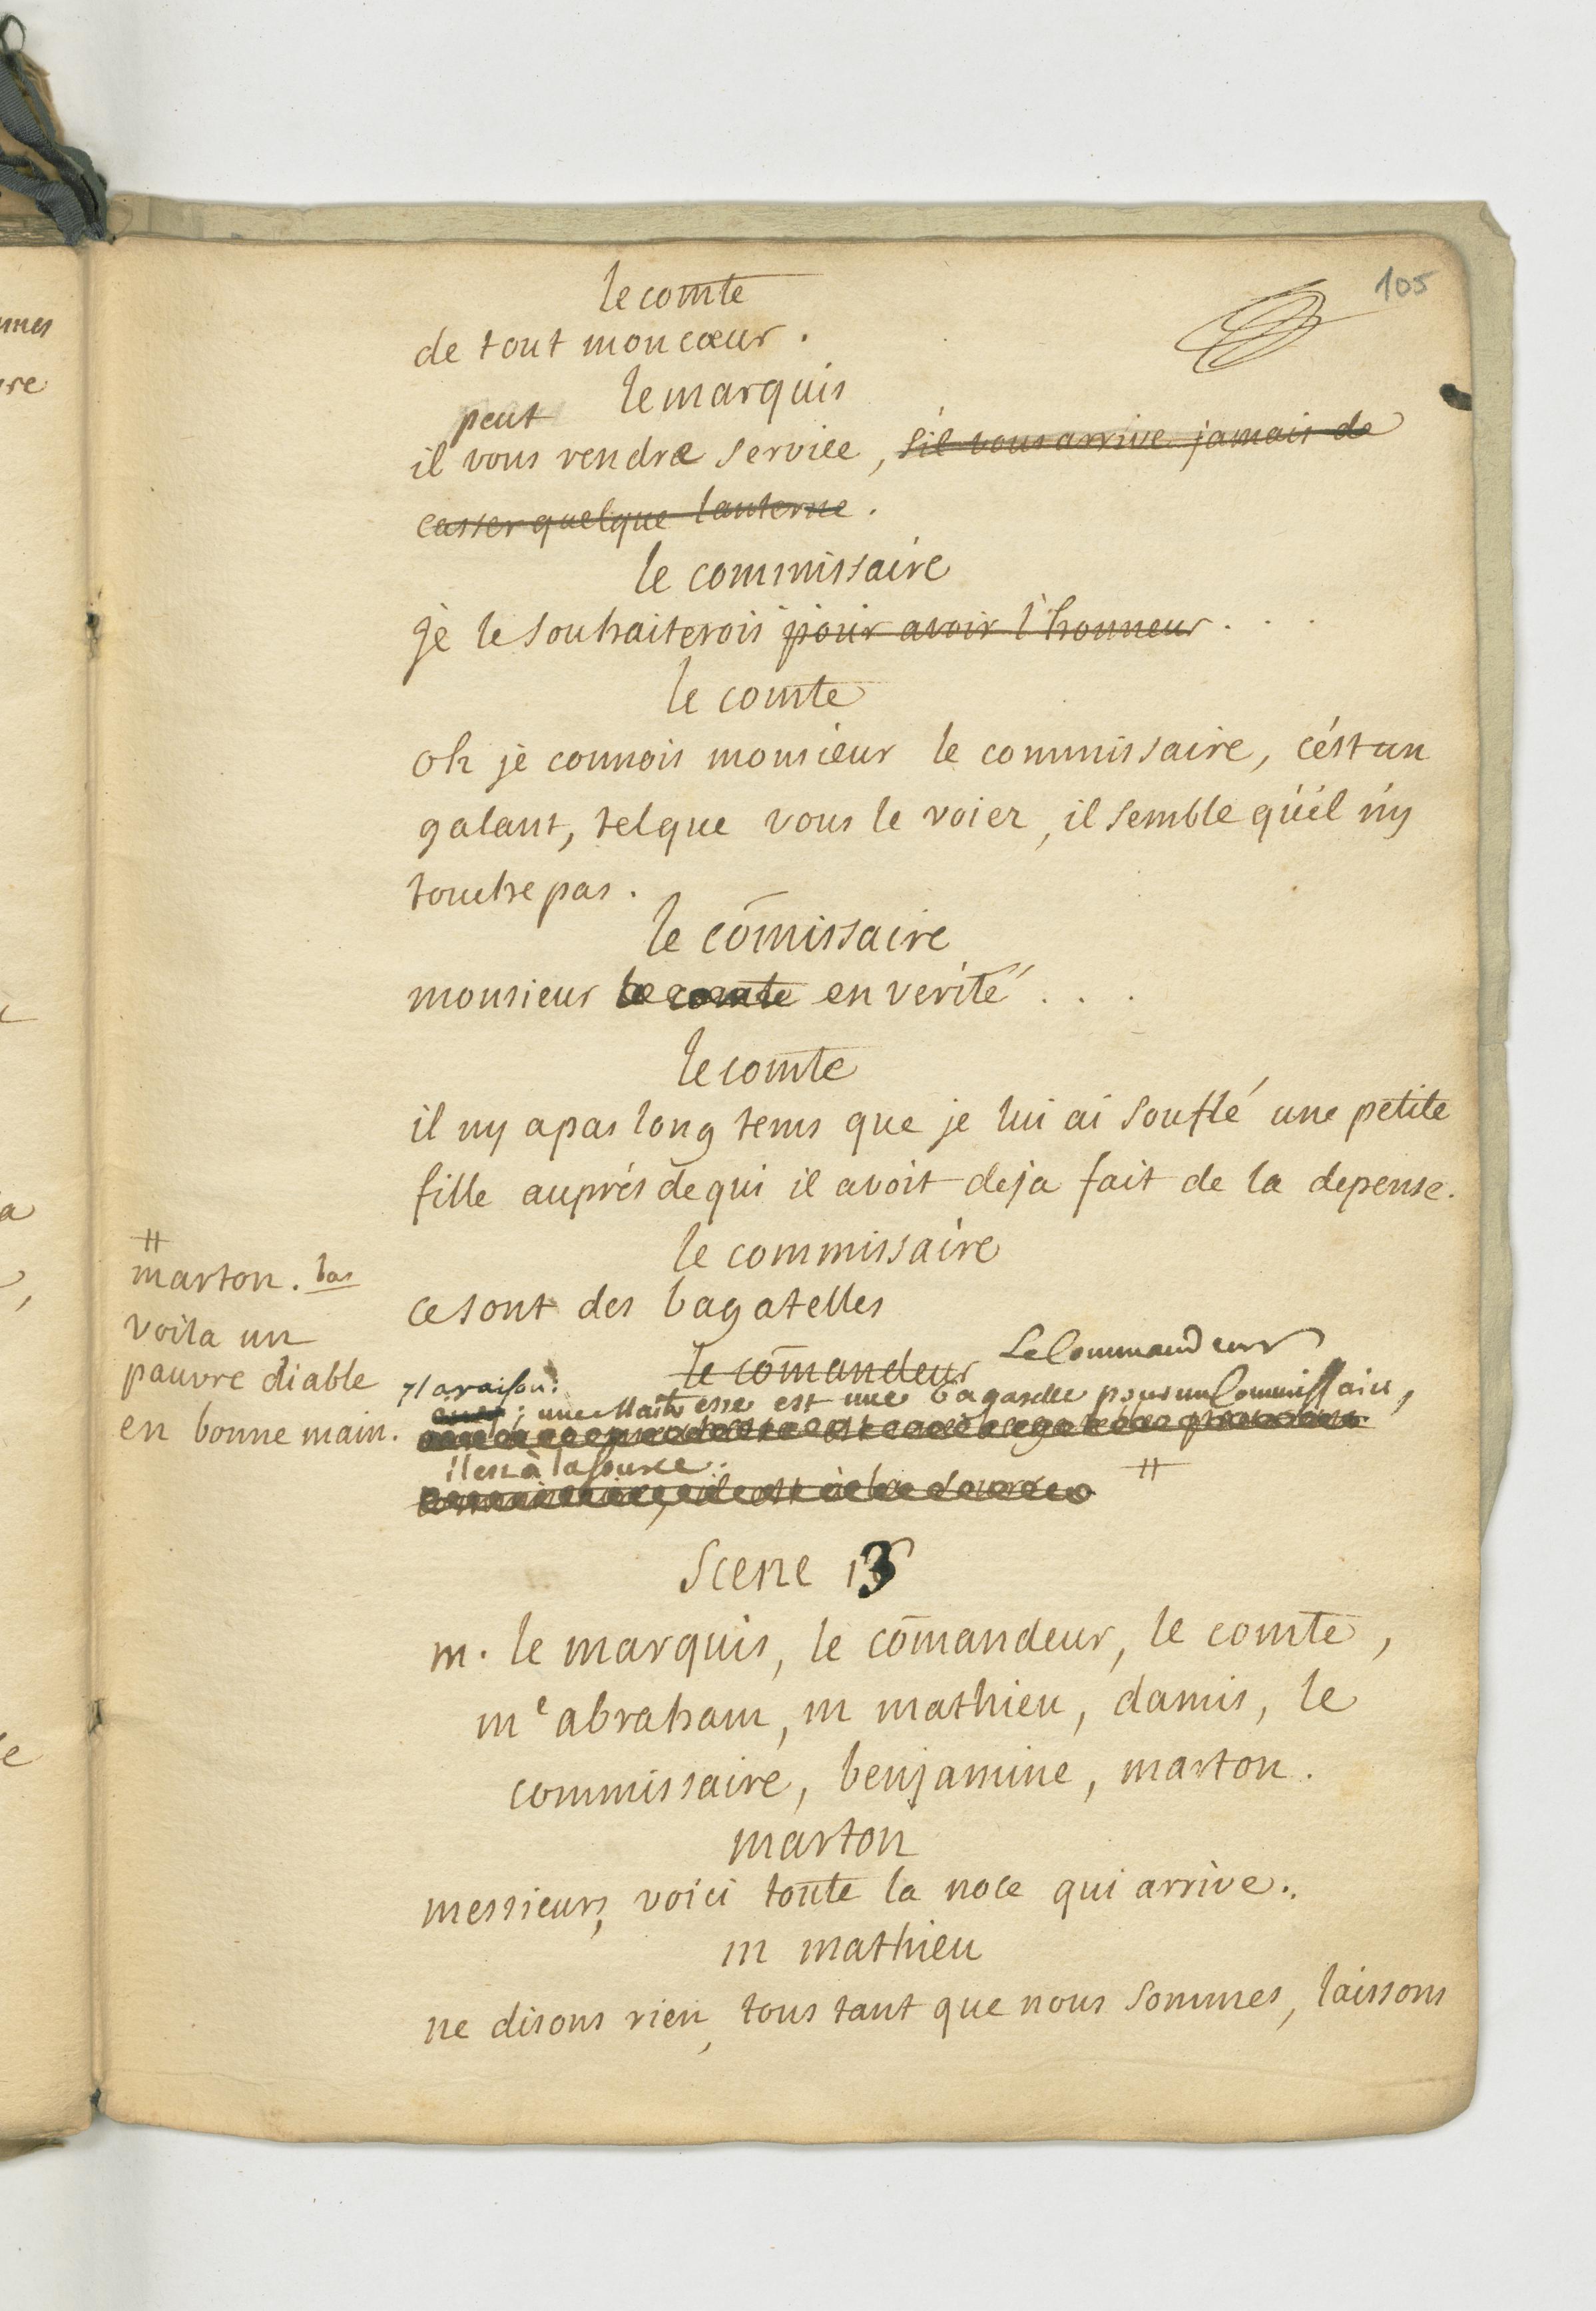 105
le comte
de tout mon cœur.
le marquis
peut
il vous rendre service, s'il vous arrive jamais de
casser quelque lanterne.
le commissaire
je le souhaiterois pour avoir l'honneur . . .
le comte
oh je connois monsieur le commissaire, c'est un
galant, tel que vous le voiez, il semble qu'il n'y
touche pas.
le cōmissaire
monsieur le comte en verité . . .
le comte
il ny a pas long tems que je lui ai souflé une petite
fille auprés de qui il avoit deja fait de la depense.
le commissaire
ce sont des bagatelles
le cōmandeur Le Commandeur
Il a raison: une Maitresse est une bagatelle pour un Commissaire,
il est à la source.
commissaire, il est à la source
#
#
marton. bas
voila un
pauvre diable
en bonne main.
Scene 13
m. le marquis, le cōmandeur, le comte,
me abraham, m mathieu, damis, le
commissaire, benjamine, marton.
marton
messieurs, voici toute la noce qui arrive.
m mathieu
ne disons rien, tous tant que nous sommes, laissons